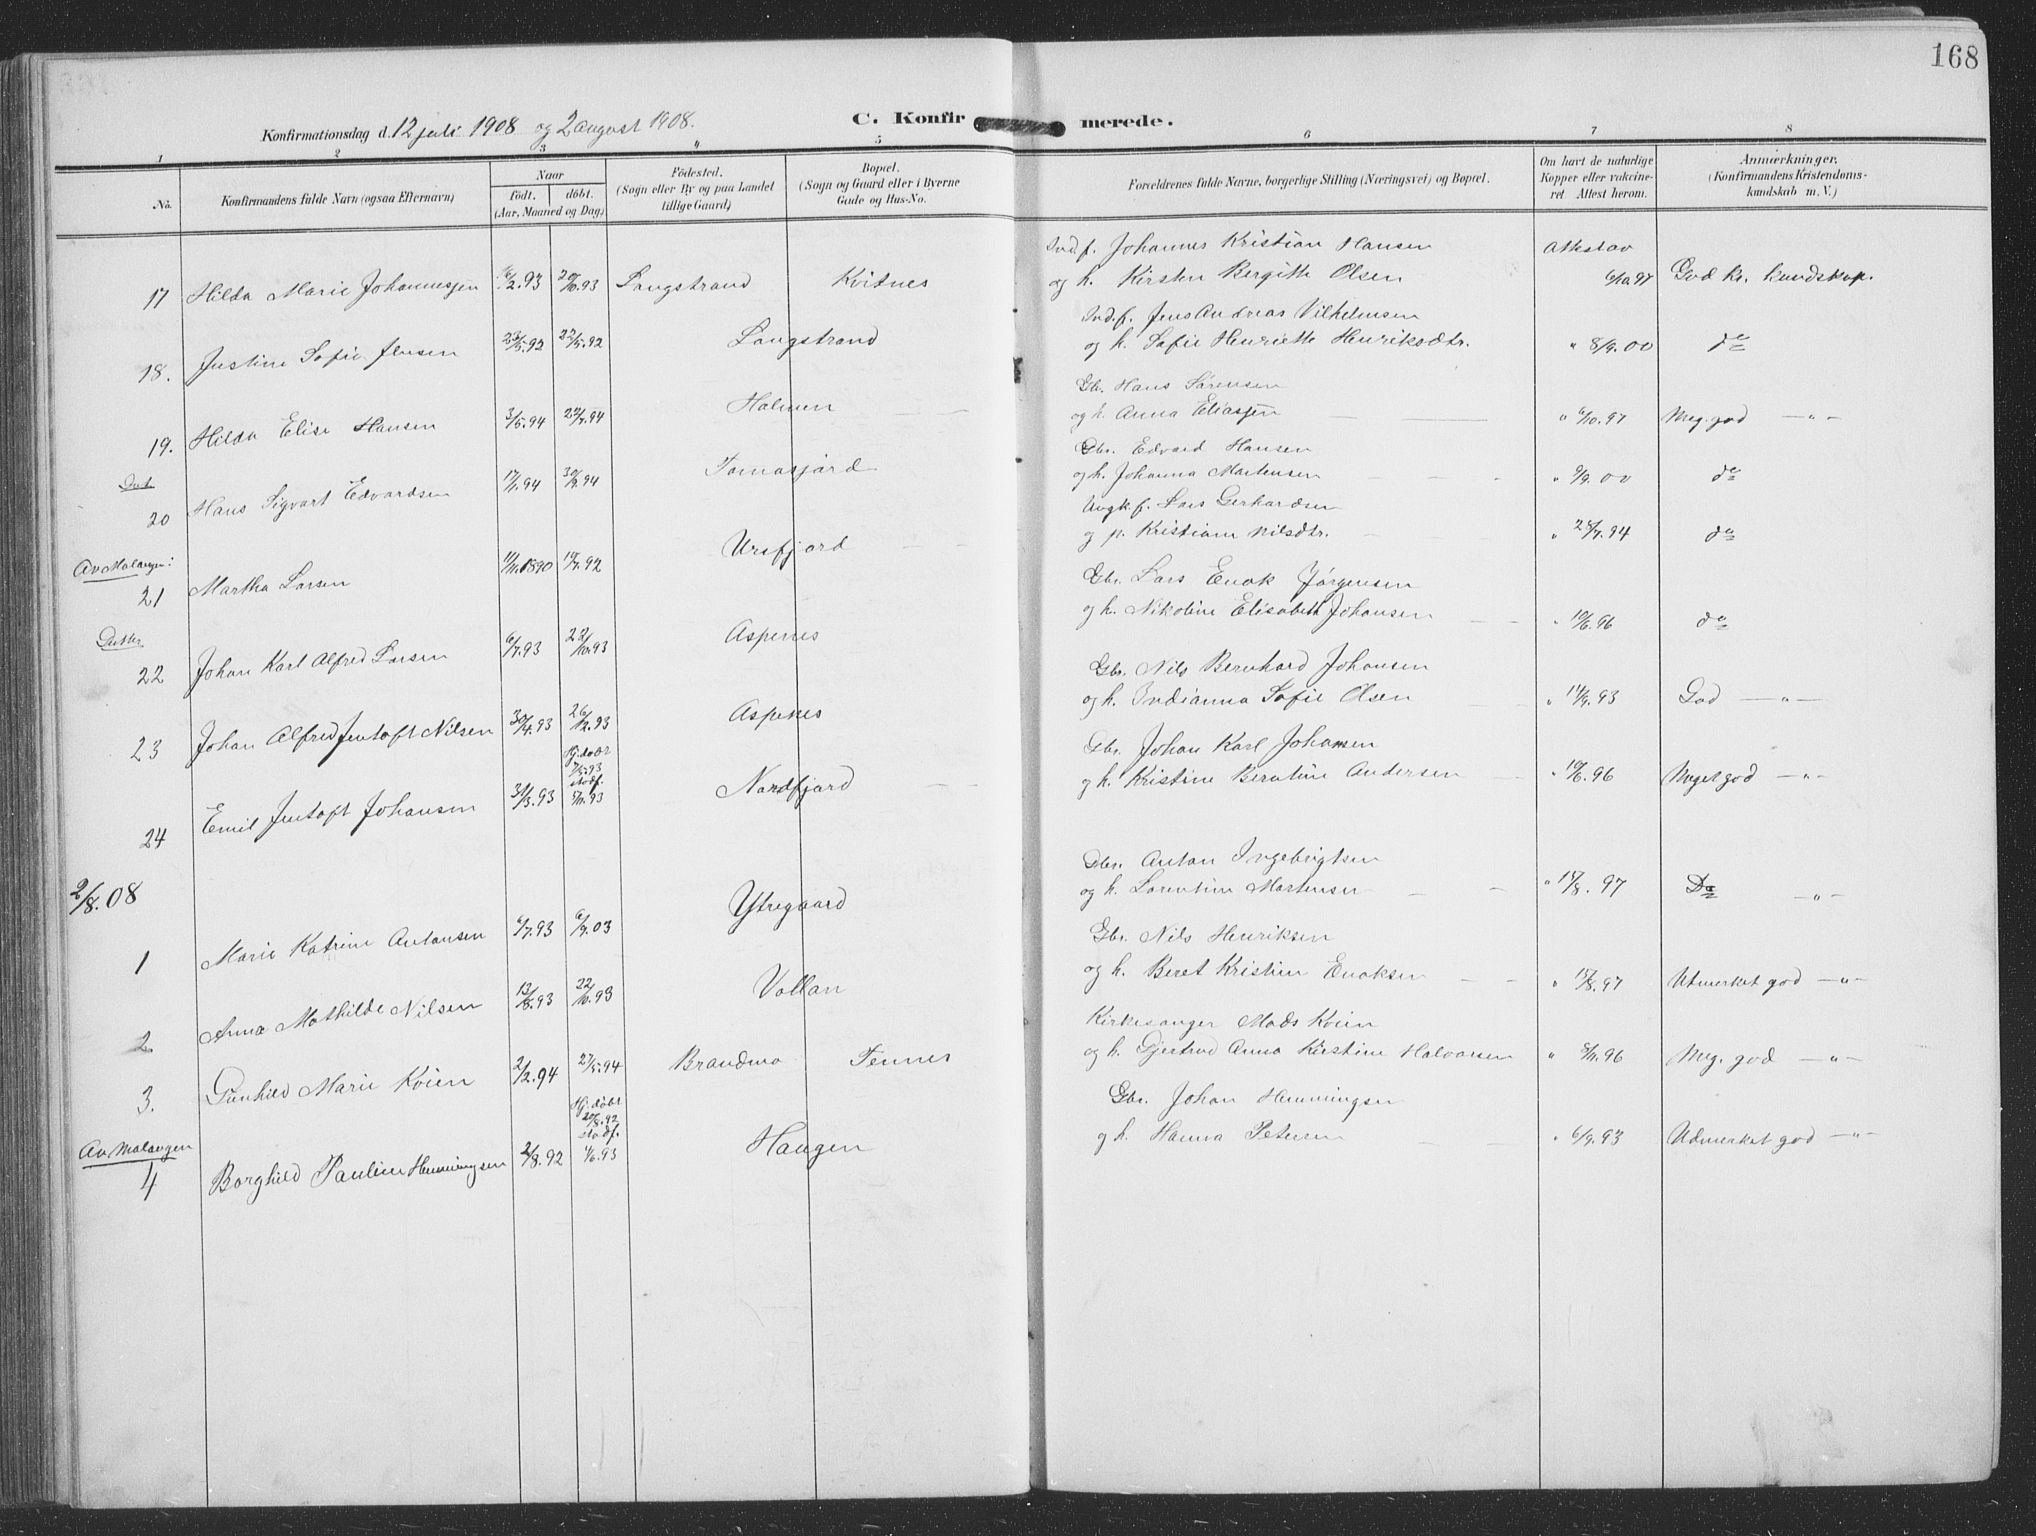 168
C. Konfirmerede.
Konfirmationsdag d. 12 juli 1908 og 2 august 1908.
1 2 3 4 5 6 7 8
No.
Konfirmandens fulde Navn (ogsaa Efternavn)
Naar
født. døbt.
(Aar, Maaned og Dag)
Fødested.
(Sogn eller By og paa Landet
tillige Gaard)
Bopæl.
(Sogn og Gaard eller i Byerne
Gade og Hus-No.
Forældrenes fulde Navne, borgerlige Stilling (Næringsvei) og Bopæl.
Om havt de naturlige
Kopper eller vakcine-
ret. Attest herom.
Anmærkninger,
(Konfirmandens Kristendoms-
kundskab m. V.)
Ind.f. Johannes Kristian Hansen
17 Hilda Marie Johannesjen 2.93 20/10.93 Langstrand Kvitnes og h. Kirsten Bergitte Olsen 6/10.97 God kr. kundskap.
Ind.f. Jens Andreas Vilhelmsen
18. Justine Sofie Jensen 23/5.92 22/5.92 Langstrand og h. Sofie Henriette Henriksdtr. " 8/9.00 do
Gbr. Hans Sørensen
19. Hilda Elise Hansen 3/5.94 22/7.94 Holmen og h. Anna Eliasjen " 6/10.97 Meg. god — " —
Gbr. Edvard Hansen
20 Hans Sigvart Edvardsen 17/1.94 30/9.94 Tomasjord og h. Johanna Martensen " 9/9.00 do
Av Malangen:
Ungk.f. Lars Gerhardsen
21 Martha Larsen 11/11.1890 19/7.92 Ursfjord og p. Kristiane Nilsdtr. " 28/7.94 do
Gbr. Lars Enok Jørgensen
22 Johan Karl Alfred Larsen 6/7.93 22/10.93 Aspenes og h. Nikoline Elisabeth Johansen " 19/6.96 do
Gbr. Nils Bernhard Johansen
23 Johan Alfred Jentoft Nilsen 30/4.93 26/12.93 Aspenes og h. Indianna Sofie Olsen " 14/9.93 God — " —
Hj. døbt
7/5.93
stadf.
Gbr. Johan Karl Johansen
24 Emil Jentoft Johansen 31/3.93 5/11.93 Nordfjord og h. Kristine Berntine Andersen " 19/6.96 Meget god — " —
2/8.08
Gbr. Anton Ingebrigtsen
1 Marie Katrine Antonsen 6/7.93 6/9.03 Ytregaard og h. Lorentine Martensen " 15/8.97 Do — " —
Gbr. Nils Henriksen
2 Anna Mathilde Nilsen 13/8.93 22/10.93 Vollan og h. Beret Kristine Enoksen " 15/8.97 Utmerket god — " —
Kirkesanger Mads Kvien
3. Gunhild Marie Kvien 2/2.94 27/5.94 Brandmo Tennes og h. Gjertrud Anna Kirstine Halvorsen " 8/11.96 Meg. god — " —
Av Malangen
Hj. døbt
20/8.92
stadf.
Gbr. Johan Henningsen
4 Borghild Pauline Henningsen 2/8.92 4/6.93 Haugen og h. Hanna Petersen " 6/9.93 Udmerket god — " —